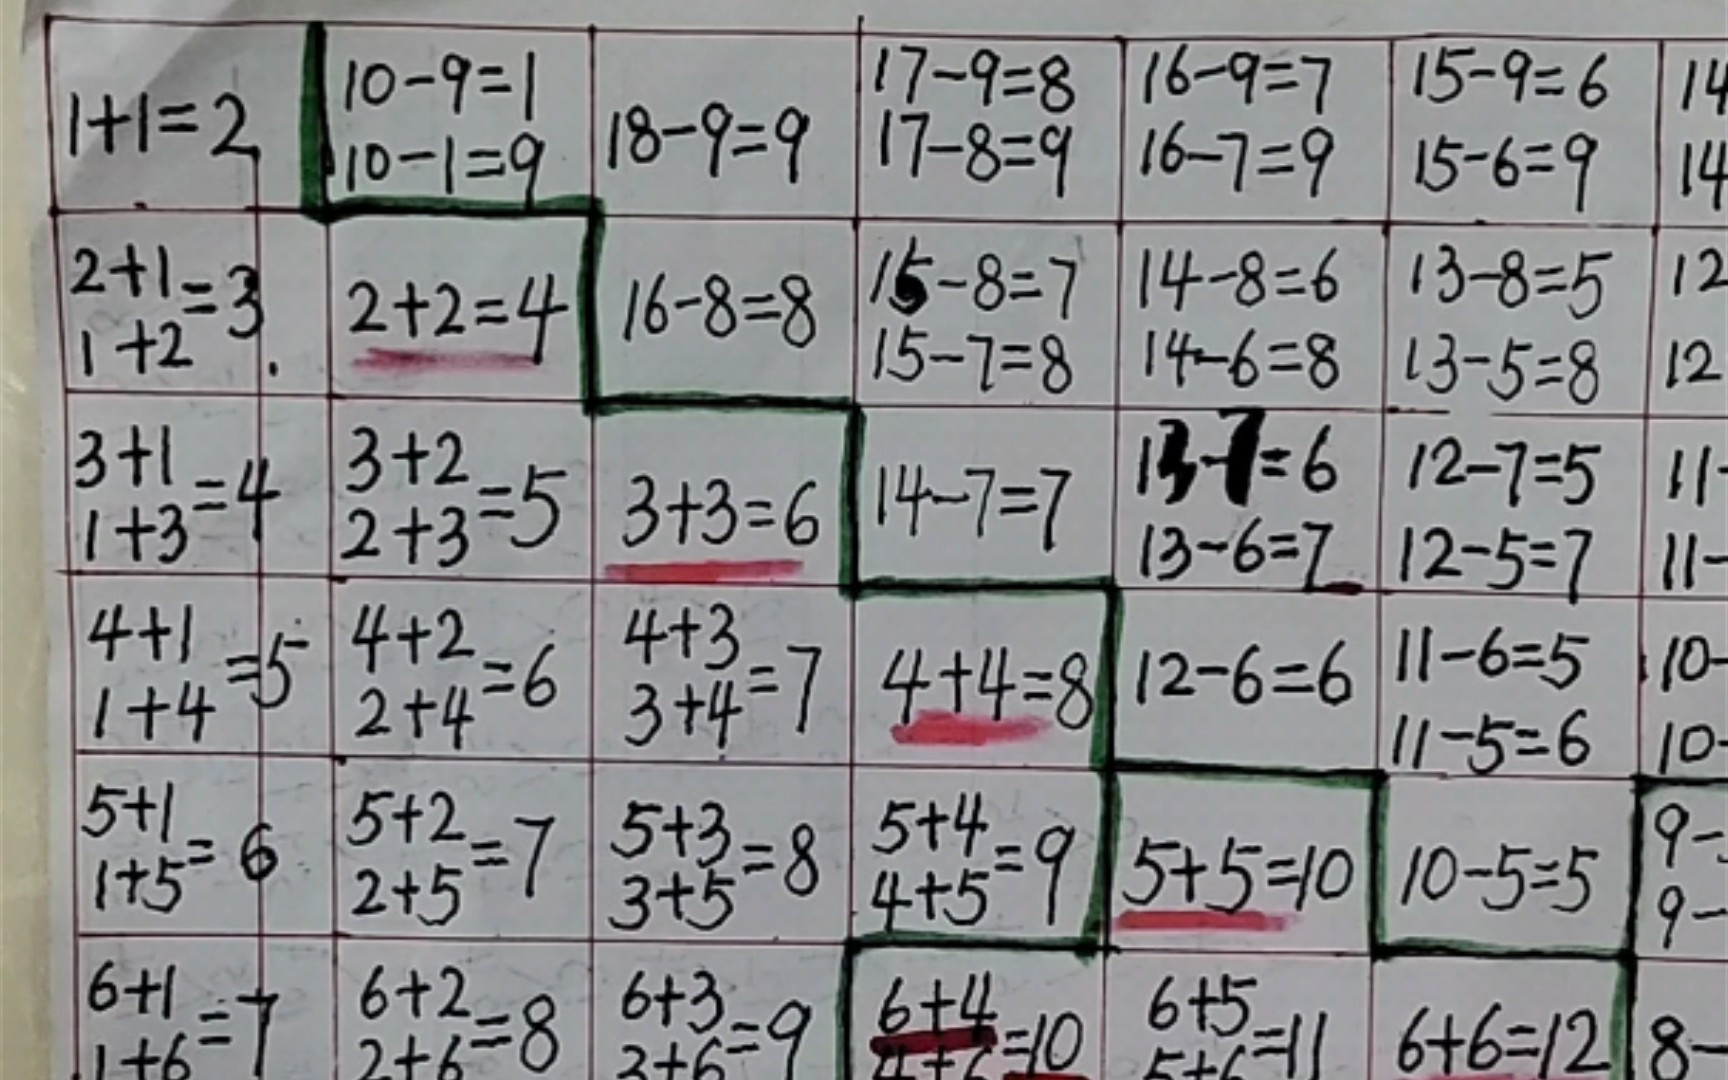 1+1=2 10-9=1 10-1=9 18-9=9 17-9=8 17-8=9 16-9=7 16-7=9 15-9=6 15-6=9 14 14
2+1 1+2 =3 2+2=4 16-8=8 15-8=7 15-7=8 14-8=6 14-6=8 13-8=5 13-5=8 12 12
3+1 1+3 =4 3+2 2+3 =5 3+3=6 14-7=7 13-7=6 13-6=7 12-7=5 12-5=7 11- 11-
4+1 1+4 =5 4+2 2+4 =6 4+3 3+4 =7 4+4=8 12-6=6 11-6=5 11-5=6 10- 10-
5+1 1+5 =6 5+2 2+5 =7 5+3 3+5 =8 5+4 4+5 =9 5+5=10 10-5=5 9- 9-
6+1 1+6 =7 6+2 2+6 =8 6+3 3+6 =9 6+4 4+6 =10 6+5 5+6 =11 6+6=12 8-